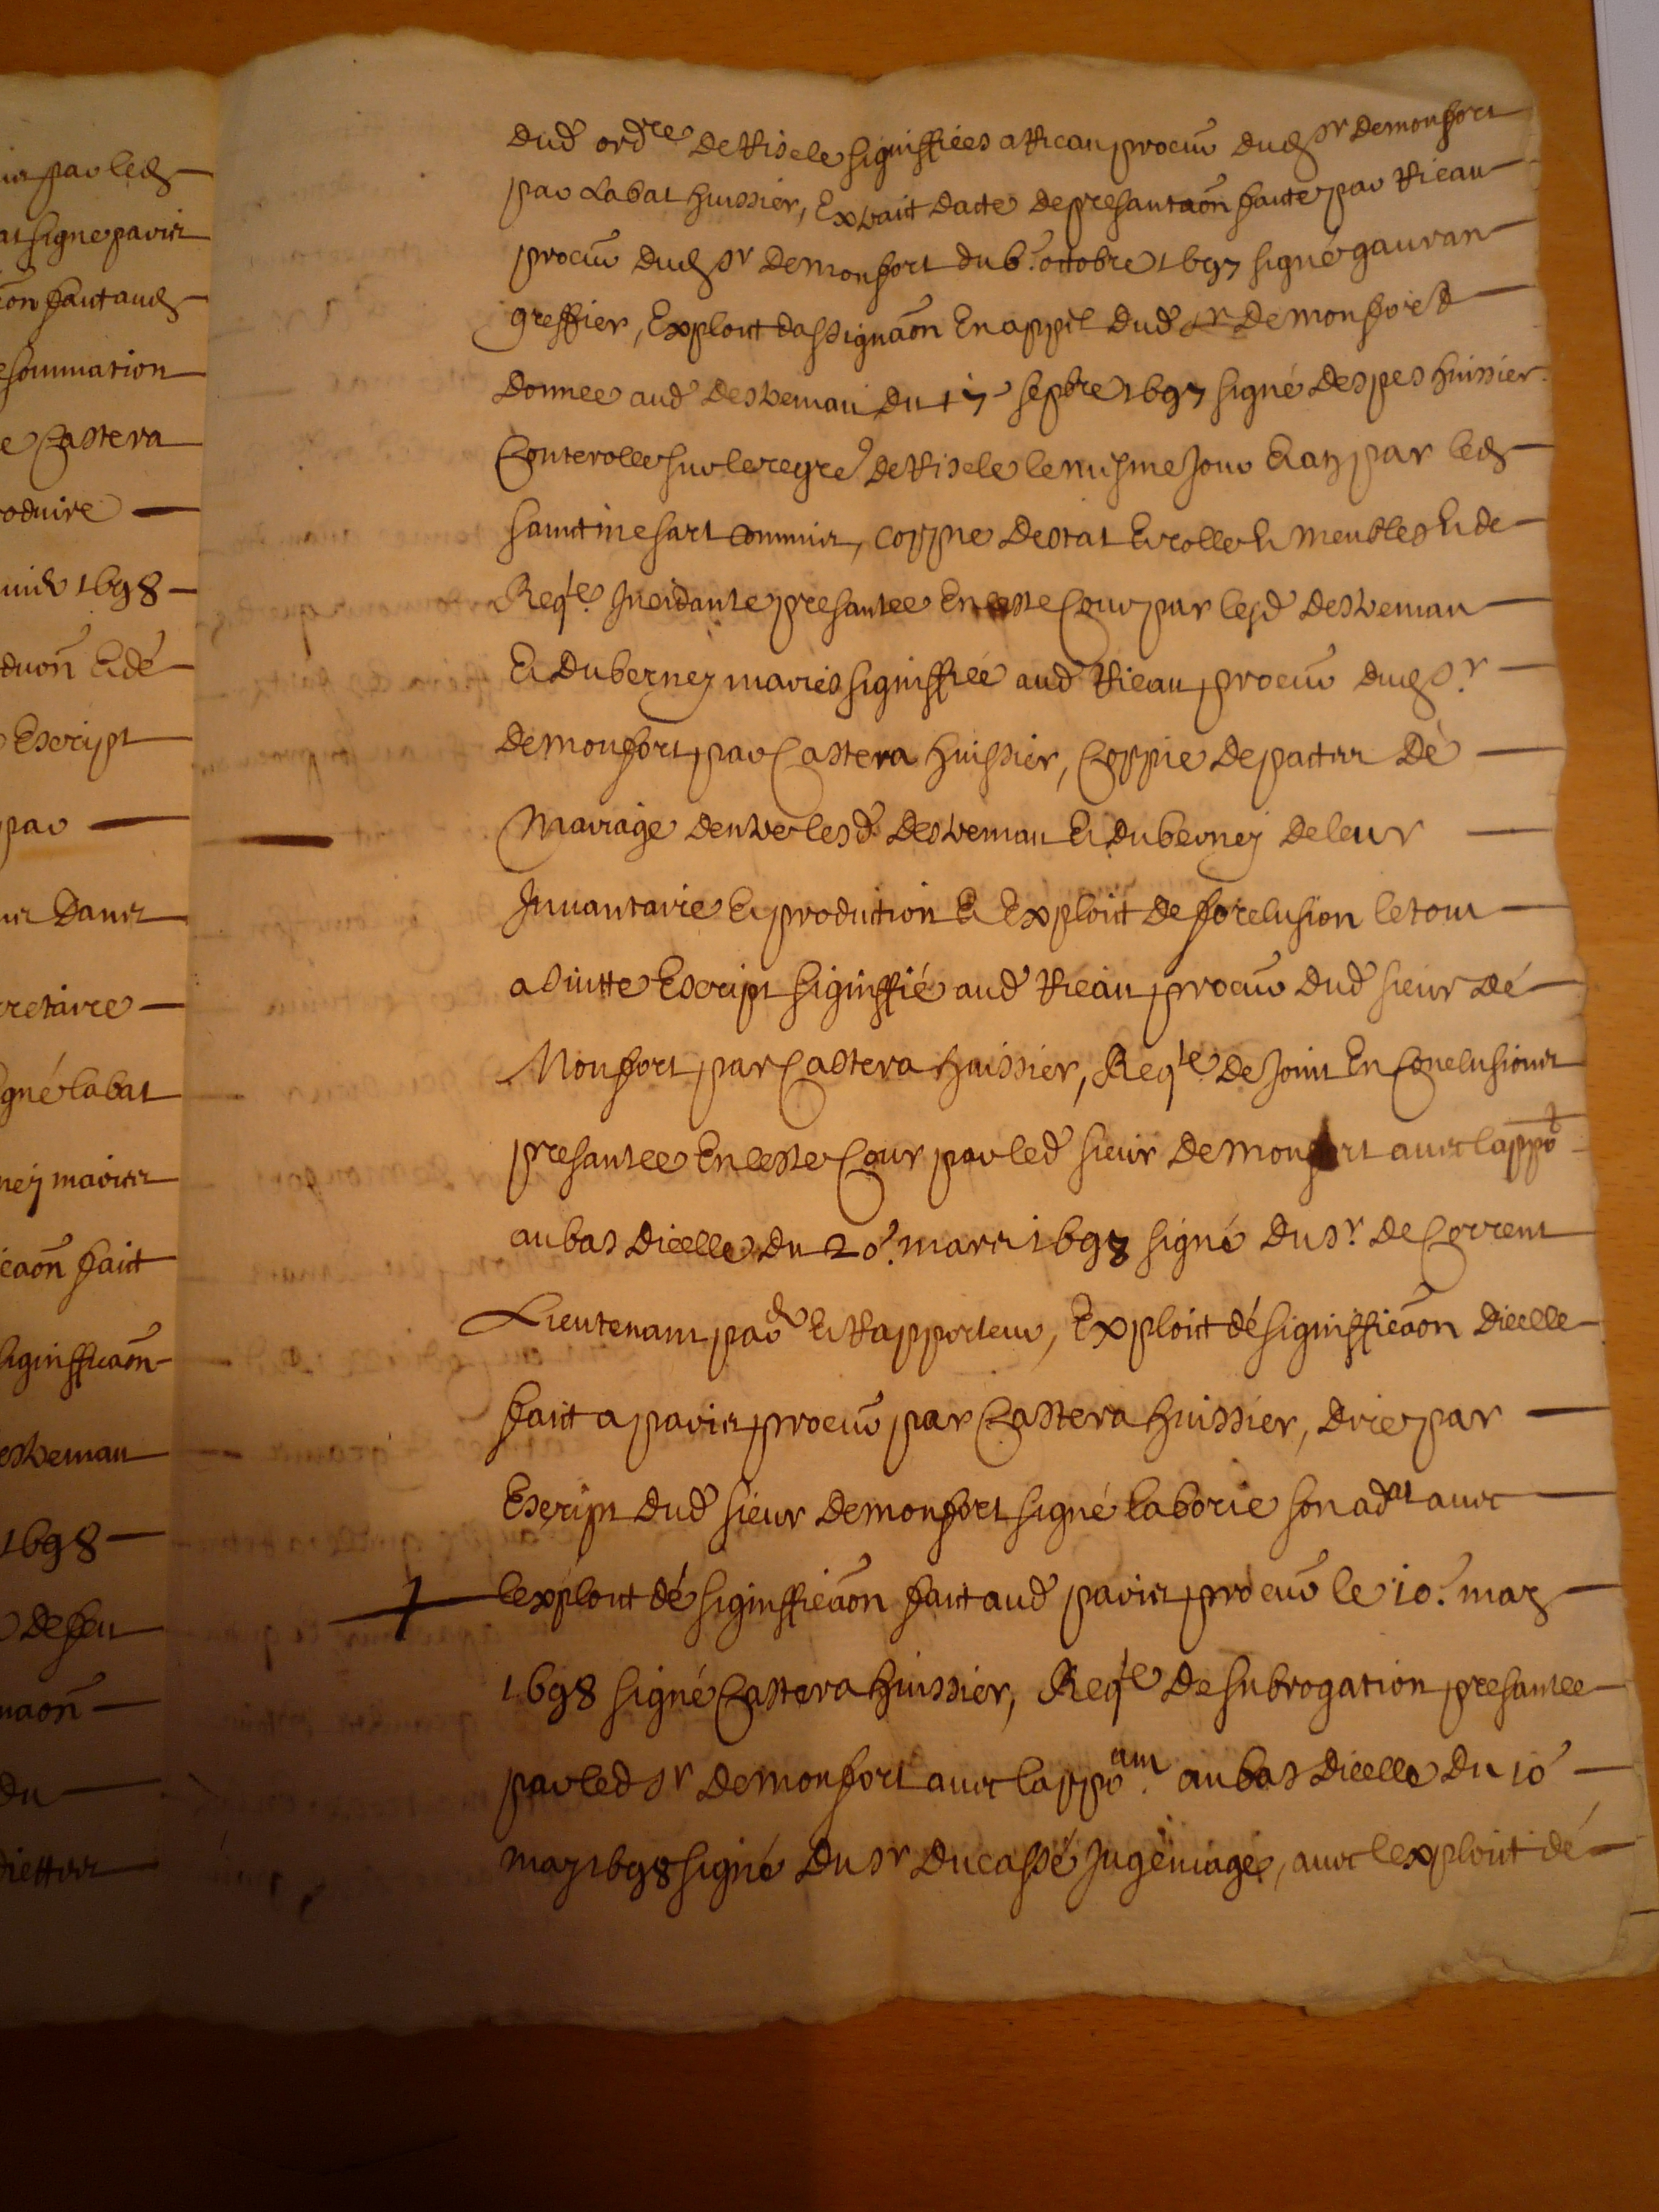 ins par led
at signé paris
aon fait aud
sommation
e Castera
oduire
1698
duon̄ et dé
Escript
par
Dans
cretaire
gné labat
ney mariés
caon̄ faict
signifficaon̄
estreman
1698
de feu
naon̄
du
dud ordre de Riscle signiffiées a Rieau procur̄ dud sr demonfort
par Labat huissier, Extrait dacte de presantaon̄ faite par Rieau
procur̄ dud sr demonfort du 6e octobre 1697 signé gauran
greffier, Exploit dassignaon̄ En appel dud sr demonfort
donnee aud destreman du 17e sepbre 1697 signé despes huissier
Conterolle sur le regre de Riscle le mesme jour par led
commis, coppie destat et rolle de meubles et de
Reqte Incidante presantee En ceste Cour par lesd destreman
et duberney mariés signiffiée aud Rieau procur̄ dud sr
demonfort par Castera huissier, Coppie de pactes dé
Mariage dentre lesd destreman et duberney de leur
Inuantaire et production et Exploit de forclusion le tout
a suitte Escript signiffié aud Rieau procur̄ dud sieur dé
Monfort par Castera huissier, Reqte de joint En Conclusions
presantee En ceste Cour par led sieur demonfort auec lappot
au bas dicelle du 20e mars 1698 signé du sr de Corrent
Lieutenant par et Rapporteur, Exploit dé signifficaon̄ dicelle
faict a paris procur̄ par Castera huissier, dire par
Escript dud sieur demonfort signé laborie son adat auec
lexploit dé signifficaon̄ fait aud paris procur̄ le 10e may
1698 signé Castera huissier, Reqte de subrogation presantee
par led sr demonfort auec lappoam au bas dicelle du 10e
may 1698 signé du sr ducassé juge mage, auec lexploit dé